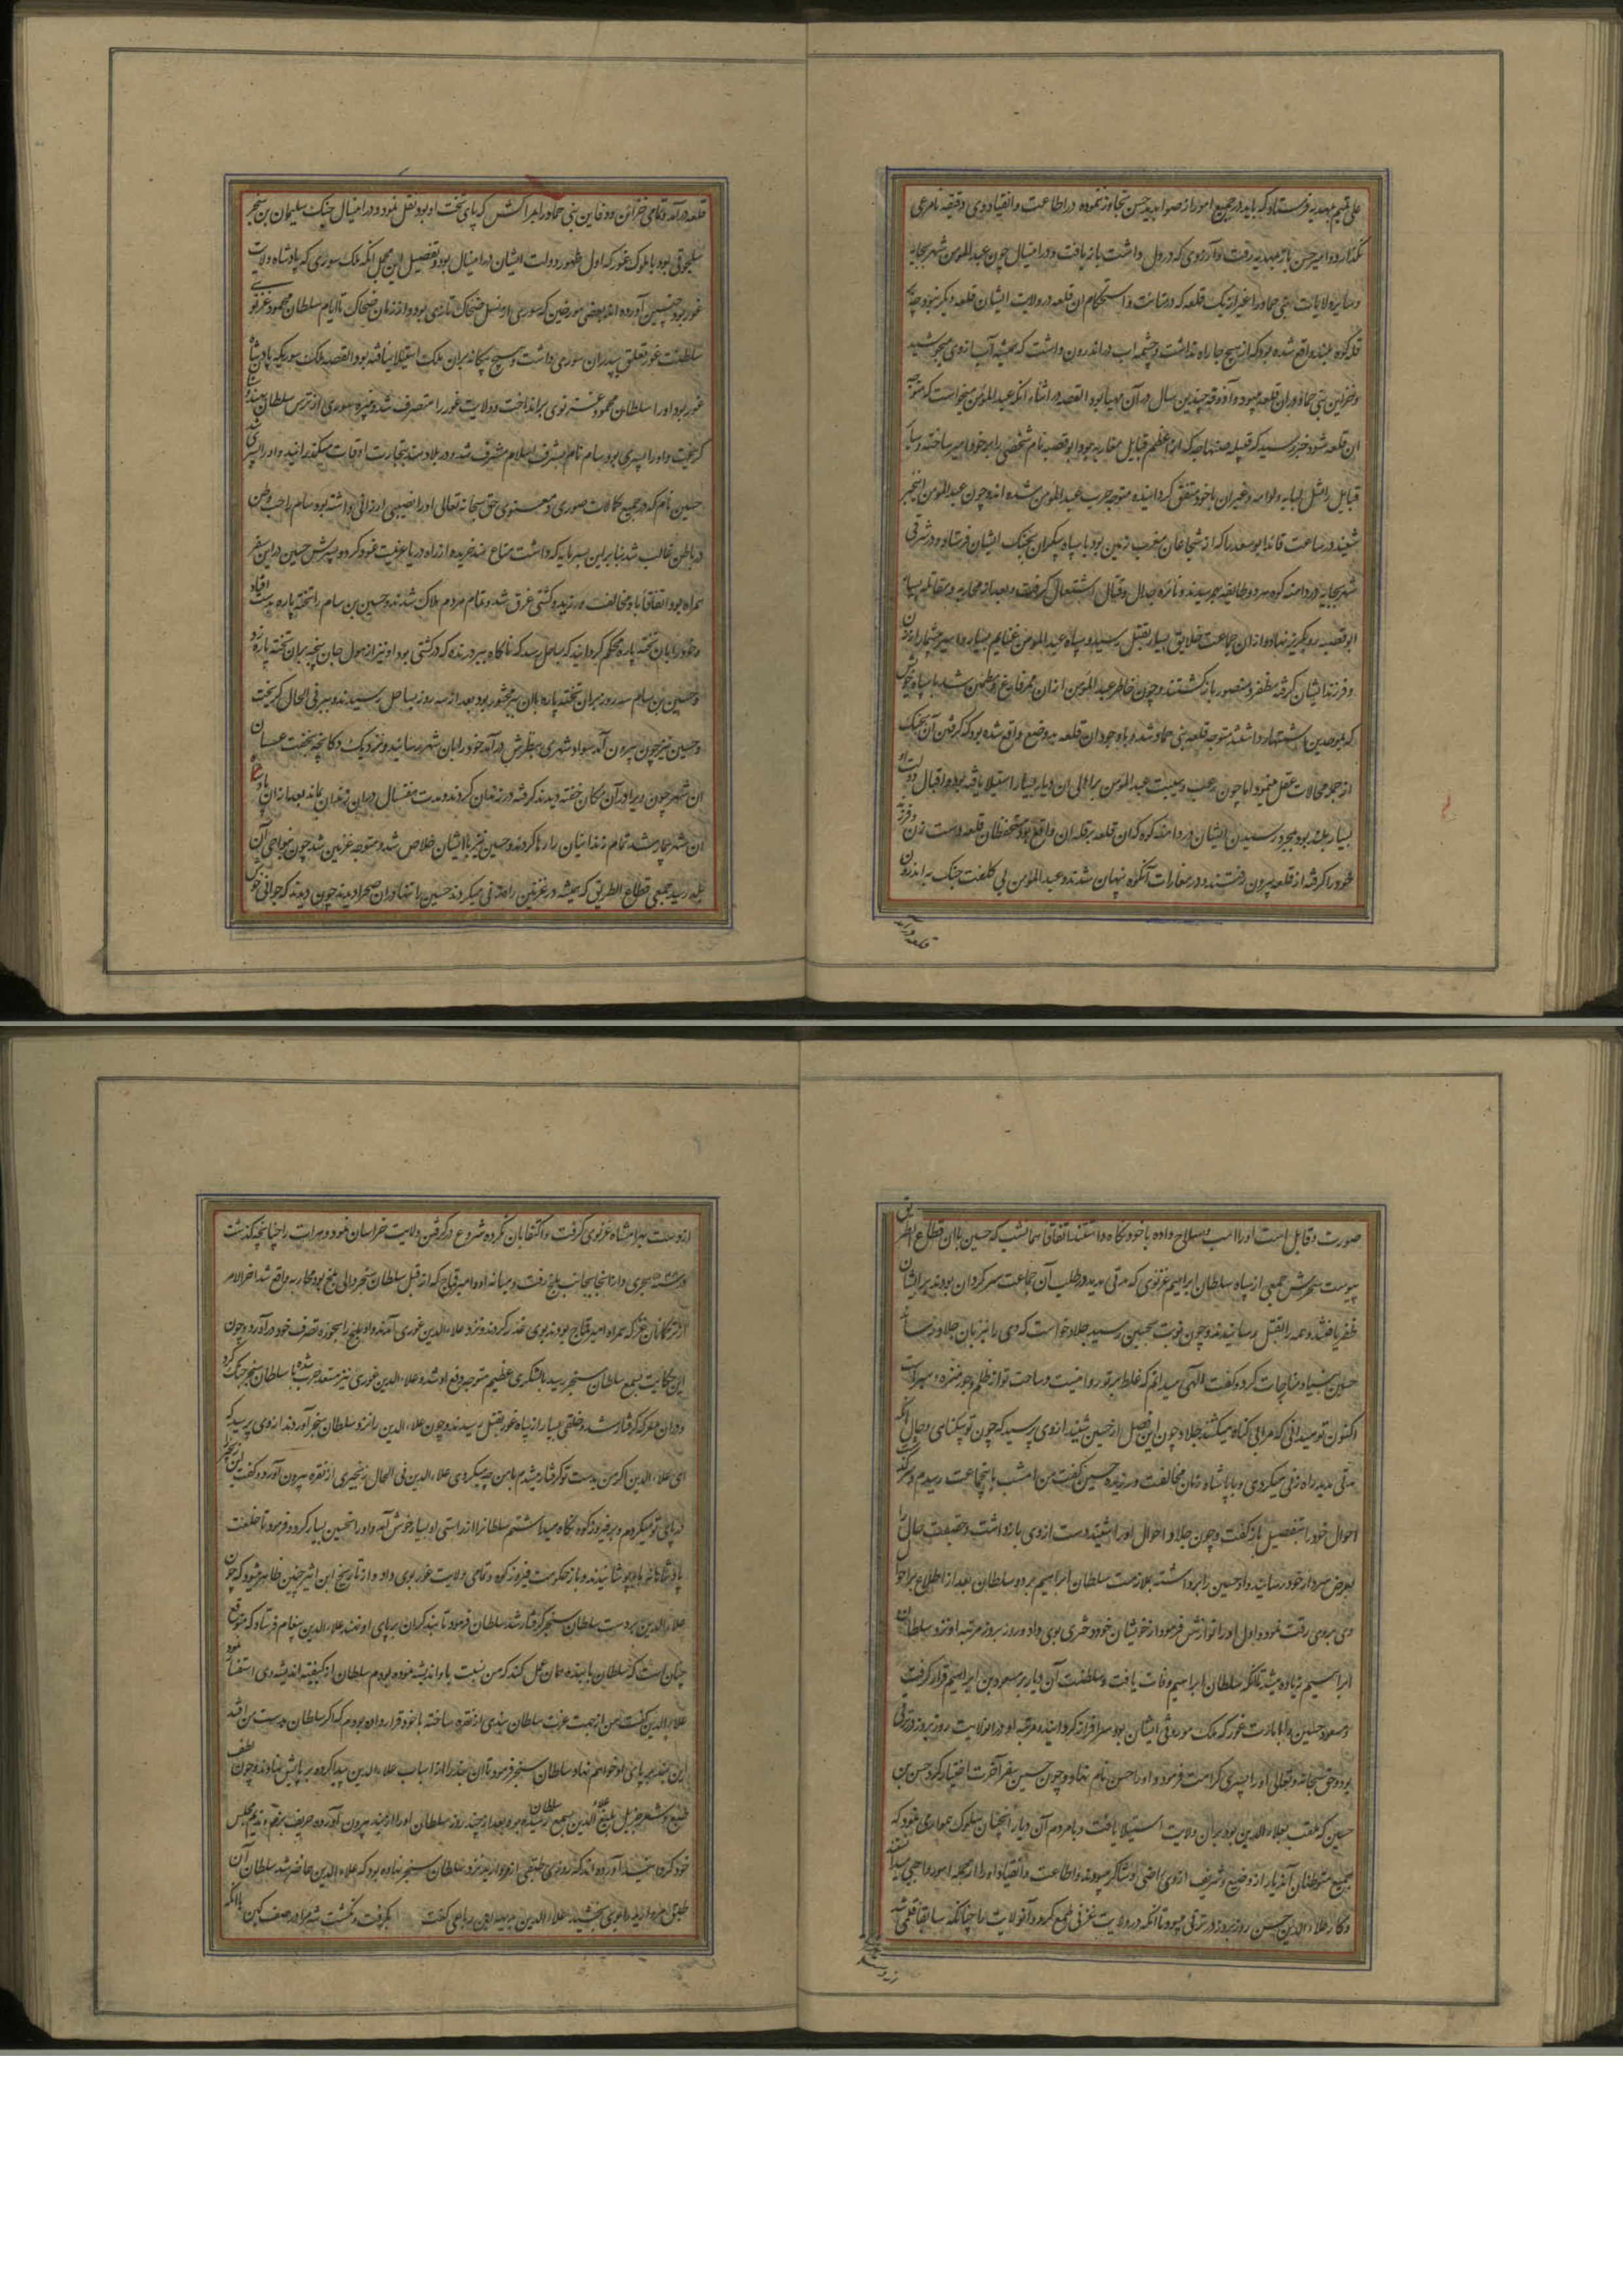 علی قیم مهدیه فرستاد که باید در جمیع امور از صوابدید حسن تجاوز ننموده در اطاعت و انقیاد وی دقیقه نامرعی
نگذارد و امیر حسن باز بمهدیه رفت و آرزوی که در دل داشت باز یافت و در این سال چون عبدالمومن شهر بجایه
و سایر ولایات بنی حماد را غیر از یک قلعه که در متانت و استحکام آن قلعه در ولایت ایشان قلعه دیگر نبود و چه
قله کوه بلند واقع شده بود که از هیچ جا راه نداشت و چشمه آب در اندرون داشت که همیشه آب از وی میجوشید
و خزاین بنی حماد در آن قلعه میبود و آذوقه چندین سال در آن مهیا بود القصه در اثناء آنکه عبدالمؤمن میخواست که متوجه
آن قلعه شود خبر رسید که قبیله صنهاجه که از اعظم قبایل مغاربه بود ابو قصبه نام شخصی را بر خود امیر ساخته و سایر
قبایل را مثل لبایه و لواته و غیر آن با خود متفق گردانیده متوجه حرب عبدالمومن شده اند و چون عبدالمومن این خبر
شنید در ساعت قائد ابو سعد را که از شجاعان مغرب زمین بود با سپاه بیکران بجنگ ایشان فرستاد و در شرقی
شهر بجایه در دامنه کوه هر دو طایفه بهم رسیدند و نایره جدال و قتال اشتعال گرفت و بعد از محاربه و مقاتله بسیار
ابو قصبه رو بگریز نهاد و از آن جماعت خلایق بسیار بقتل رسید و سپاه عبدالمومن غنایم بسیار و اسیر بیشمار از زن
و فرزند ایشان گرفته مظفر و منصور بازگشتند و چون خاطر عبدالمومن از آن ممر فارغ و مطمئن شد با سپاه خویش
که بموحدین اشتهار داشتند متوجه قلعه بنی حماد شد و با وجود آن قلعه بر وضع واقع شده بود که گرفتن آن بجنگ
از جمله محالات عقل مینمود اما چون رعب و هیبت عبدالمومن بر اهالی آن دیار بسیار استیلا یافته بود و اقبال و دولت او
بسیار بلند بود بمجرد رسیدن ایشان در دامنه کوه که آن قلعه بر قله آن واقع بود مستحفظان قلعه دست زن و فرزند
خود را گرفته از قلعه بیرون رفتند و در مغارات آنکوه پنهان شدند و عبدالمومن بی کلفت جنگ به اندرون
قلعه در آمد
قلعه در آمد و تمامی خزائن و دفاین بنی حماد را بمراکش که پای تخت او بود نقل نمود و در این سال جنگ سلیمان بن سنجر
سلجوقی بود با ملوک غور که اول ظهور دولت ایشان در این سال بود و تفصیل این مجمل آنکه ملک سوری که پادشاه ولایت
غور بود چنین آورده اند بعضی مورخین که سوری از نسل ضحاک تازی بود و از زمان ضحاک تا ایام سلطان محمود غزنوی
سلطنت غور تعلق بپدران سوری داشت و هیچ بیگانه بر آن ملک استیلا نیافته بود القصه ملک سوری که پادشاه
غور بود او را سلطان محمود غزنوی برانداخت و ولایت غور را متصرف شد و نبیره سوری از ترس سلطان بهندوستان
گریخت و او را پسری بود سام نام بشرف اسلام مشرف شد و در بلاد هند بتجارت اوقات میگذرانید و او را پسری شد
حسین نام که در جمیع کمالات صوری و معنوی حق سبحانه تعالی او را نصیبی ارزانی داشته بود سام را حب وطن
در باطن غالب شد بنابراین بسرمایه که داشت متاع هند خریده از راه دریا عزیمت غور کرد و پسرش حسین در این سفر
همراه بود اتفاقا باد مخالفت ورزید و کشتی غرق شد و تمام مردم هلاک شدند و حسین بن سام را تخته پاره بدست افتاد
و خود را بآن تخته پاره محکم گردانید که بساحل رسد که ناگاه ببر درنده که در کشتی بود او نیز از هول جان پنجه بر آن تخته پاره زد
و حسین بن سام سه روز بر آن تخته پاره با آن ببر محشور بود بعد از سه روز بساحل رسیدند و ببر فی الحال گریخت
و حسین نیز چون بیرون آمد سواد شهری بنظرش در آمد خود را بآن شهر رسانید و نزدیک دکانچه بخفت عسسان
آن شهر چون ویرا در آن مکان خفته دیدند گرفته در زندان کردند و مدت هفت سال در آن زندان بماند بعد از آن پادشاه
آن شهر بیمار شد تمام زندانیان را رها کردند و حسین نیز با ایشان خلاص شد و متوجه غزنین شد چون بنواحی آن
بلده رسید جمعی قطاع الطریق که همیشه در غزنین راهزنی میکردند حسین را تنها در آن صحرا دیدند چون دیدند که جوانی خوش
صورت و قابل است او را اسب و سلاح داده با خود نگاه داشتند اتفاقا همان شب که حسین با آن قطاع الطریق
پیوست سحرش جمعی از سپاه سلطان ابراهیم غزنوی که مدتی مدید در طلب آن جماعت سرگردان بودند بر ایشان
ظفر یافتند و همه را بقتل رسانیدند و چون نوبت بحسین رسید جلاد خواست که وی را نیز بآن جلادت رساند
حسین بنیاد مناجات کرد و گفت الهی میدانم که غلط بر تو روا نیست و ساحت تو از ظلم و جور منزه و مبراست
اکنون تو میدانی که مرا بی گناه میکشند جلاد چون این فصل از حسین شنید از وی پرسید که چون تو بیگناهی و حال آنکه
مدتی مدید راه زنی میکردی و با پادشاه زمان مخالفت ورزیده حسین گفت من امشب باینجماعت رسیدم و سرگذشت
احوال خود را بتفصیل بازگفت و چون جلاد احوال او را شنید دست از وی بازداشت و حقیقت حال را
بعرض سردار خود رسانید و او حسین را برداشته بملازمت سلطان ابراهیم برد و سلطان بعد از اطلاع بر احوال
وی بر وی رقت نمود و اول او را نوازش فرمود از خویشان خود دختری بوی داد و روز بروز مرتبه او نزد سلطان
ابراهیم زیاده میشد تا آنکه سلطان ابراهیم وفات یافت و سلطنت آن دیار بر مسعود بن ابراهیم قرار گرفت
و مسعود حسین را بامارت غور که ملک موروثی ایشان بود سرافراز گردانید و مرتبه او در آن ولایت روز بروز در ترقی
بود و حق سبحانه و تعالی او را پسری کرامت فرمود و او را حسن نام نهاد و چون حسین سفر آخرت اختیار کرد حسن بن
حسین که ملقب بعلاء الدین بود بر آن ولایت استیلا یافت و با مردم آن دیار آنچنان سلوک هموار می نمود که
جمیع متوطنان آندیار از وضیع و شریف از وی راضی و شاکر میبودند و اطاعت و انقیاد او را از جمله امور واجبی میدانستند
و کار علاء الدین حسن روز بروز در ترقی میبود تا آنکه در ولایت غزنی طمع کرد و آنولایت را چنانکه سابقا قلمی شد
از دست بهرامشاه غزنوی گرفت و اکتفا بآن نکرده شروع در گرفتن ولایت خراسان نمود و هرات را چنانچه گذشت
هجری و از آنجا بجانب بلخ رفت و میانه او و امیر قماج که از قبل سلطان سنجر والی بلخ بود محاربه واقع شد آخر الامر
از ترکمانان غز که همراه امیر قماج بودند بوی غدر کردند و نزد علاء الدین غوری آمدند و او بلخ را بحوزه تصرف خود در آورد و چون
این حکایت بسمع سلطان سنجر رسید با لشکری عظیم متوجه دفع او شد و علاء الدین غوری نیز مستعد حرب شده با سلطان سنجر جنگ کرد
و در آن معرکه گرفتار شد و خلقی بسیار از سپاه غور بقتل رسیدند و چون علاء الدین را نزد سلطان سنجر آوردند از وی پرسید که
ای علاء الدین اگر من بدست تو گرفتار میشدم با من چه میکردی علاء الدین فی الحال زنجیری از نقره بیرون آورد و گفت این زنجیر
در پای تو میکردم و بفیروز کوه نگاه میداشتم سلطان را از راستی او بسیار خوش آمد و او را تحسین بسیار کرد و فرمود تا خلعت
پادشاهانه باو پوشانیدند و باز حکومت فیروز کوه و تمامی ولایت غور بوی داد و از تاریخ ابن اثیر چنین ظاهر میشود که چون
علاء الدین بدست سلطان سنجر گرفتار شد سلطان فرمود تا بند گران بر پای او نهند علاء الدین پیغام فرستاد که متوقع
چنان است که سلطان با بنده همان عمل کند که من نسبت باو اندیشه نموده بودم سلطان از کیفیت اندیشه وی استفسار نمود
علاء الدین گفت من از جهت عزت سلطان بندی از نقره ساخته با خود قرار داده بودم که اگر سلطان بدست من افتد
این بند بر پای او خواهم نهاد سلطان سنجر فرمود تا آن بند را از اسباب علاء الدین پیدا کرده بر پایش نهادند و چون لطف
طبع و شعر علاء الدین بسمع سلطان رسیده بود بعد از چند روز سلطان او را از بند بیرون آورده حریف بزم و ندیم مجلس
خود گردانید آورده اند که روزی طبقی از مروارید نزد سلطان سنجر نهاده بود که علاء الدین حاضر شد سلطان آن
طبق مروارید را بوی بخشید علاء الدین بر بدیهه این رباعی گفت بگرفت و نکشت شه مرا در صف کین با آنکه